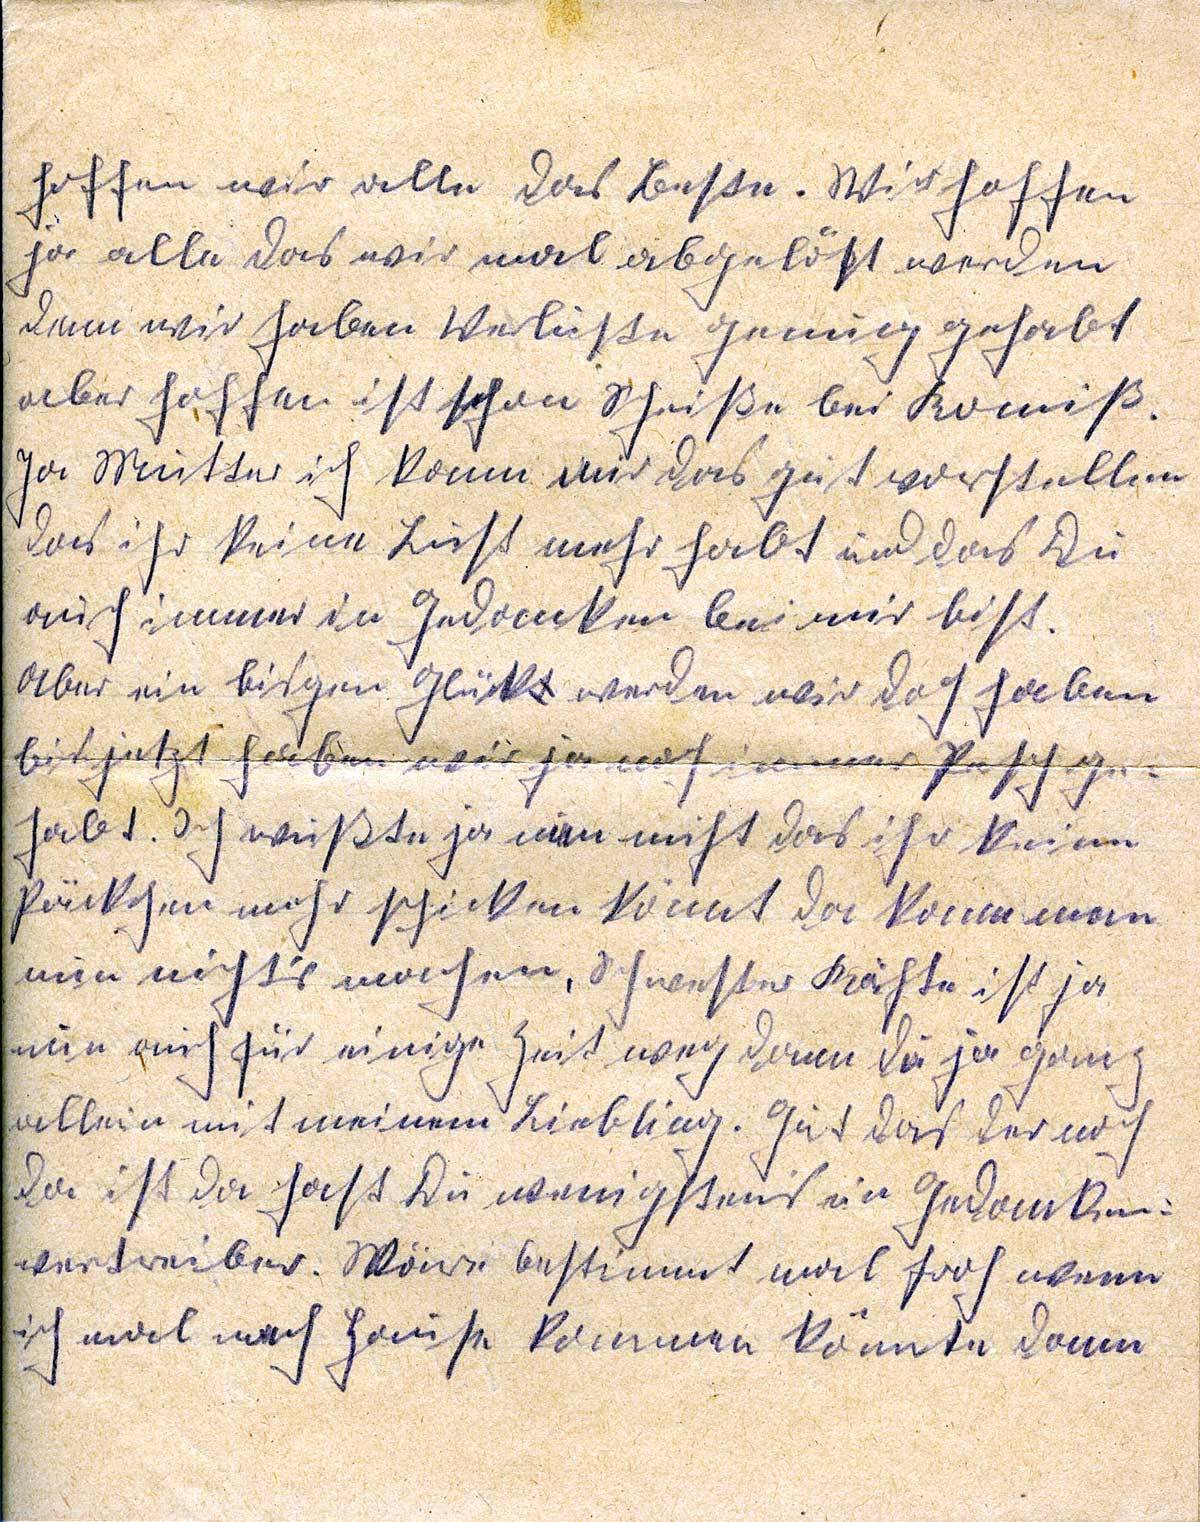 hoffen wir alle das Beste. Wir hoffen
ja alle das wir mal abgelößt werden
denn wir haben Verluste genug gehabt
aber hoffen ist schon Scheiße bei Komiß.
Ja Mutter ich kann mir das gut vorstellen
das ihr keine Lust mehr habt und das Du
auch immer in Gedanken bei mir bist.
Aber ein bisgen Glück werden wir doch haben
bis jetzt haben wir ja noch immer Pasch ge-
habt. Ich wußte ja nun nicht das ihr keine
Päckchen mehr schicken könnt da kann man
nun nichts machen, Schwester Käthe ist ja
nun auch für einige Zeit weg dann du ja ganz
allein mit meinem Liebling. Gut das der noch
da ist da hast Du wenigstens ein Gedanken-
vertreiber. Wäre bestimmt mal froh wenn
ich mal nach Hause kommen könnte dann